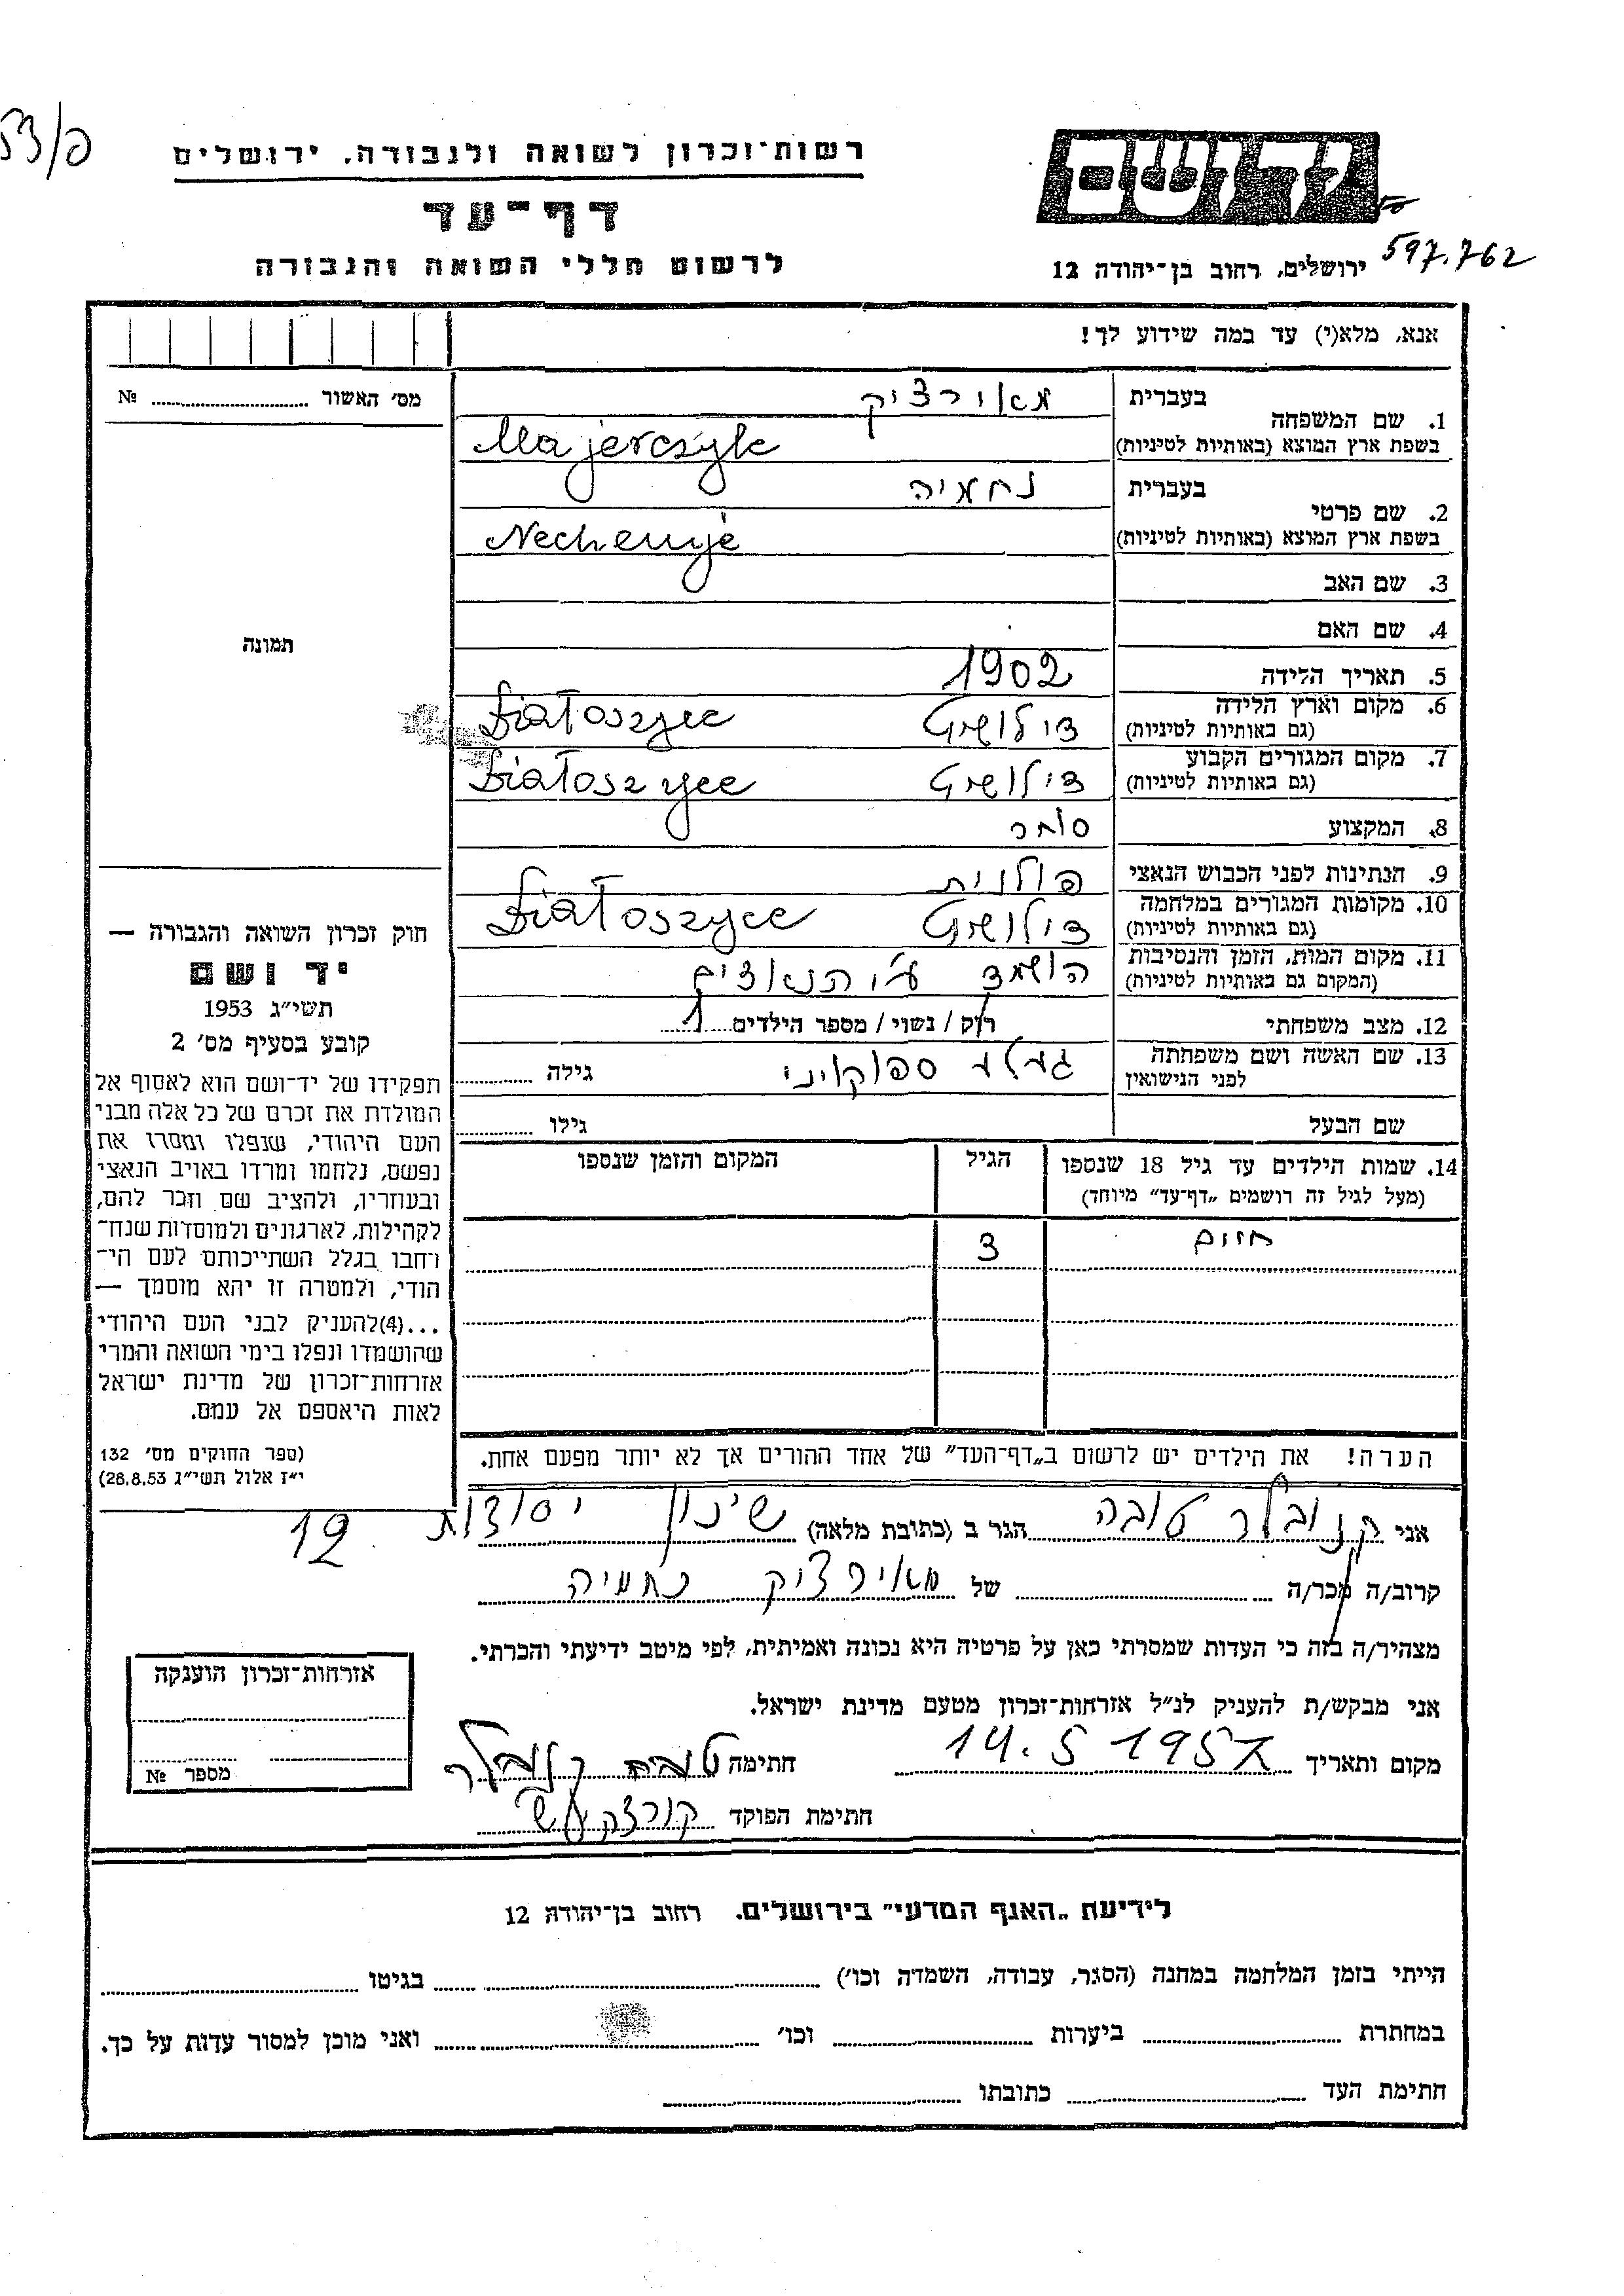 53/פ
רשות-זכרון לשואה ולגבורה, ירושלים
דף-עד
לרשום חללי השואה והגבורה
ידושם
ירושלים, רחוב בן-יהודה 12
597.762
אנא, מלא(י) עד כמה שידוע לך!
מס׳ האשור № ........
תמונה
1. שם המשפחה
בעברית מאירצ׳יק
בשפת ארץ המוצא (באותיות לטיניות) Majerczyk
2. שם פרטי
בעברית נחמיה
בשפת ארץ המוצא (באותיות לטיניות) Nechemje
3. שם האב
4. שם האם
5. תאריך הלידה 1902
6. מקום וארץ הלידה
(גם באותיות לטיניות) Działoszyce
7. מקום המגורים הקבוע
(גם באותיות לטיניות) Działoszyce
8. המקצוע סוחר
9. הנתינות לפני הכבוש הנאצי פולנית
10. מקומות המגורים במלחמה
(גם באותיות לטיניות) Działoszyce
11. מקום המות, הזמן והנסיבות
(המקום גם באותיות לטיניות) הושמד ע״י הנאצים
12. מצב משפחתי רוק / נשוי / מספר הילדים 1
13. שם האשה ושם משפחתה
לפני הנישואין גילה ........
שם הבעל גילו ........
14. שמות הילדים עד גיל 18 שנספו הגיל המקום והזמן שנספו
(מעל לגיל זה רושמים „דף-עד״ מיוחד)
חיים 3
הערה! את הילדים יש לרשום ב„דף-העד״ של אחד ההורים אך לא יותר מפעם אחת.
חוק זכרון השואה והגבורה —
יד ושם
תשי״ג 1953
קובע בסעיף מס׳ 2
תפקידו של יד-ושם הוא לאסוף אל
המולדת את זכרם של כל אלה מבני
העם היהודי, שנפלו ומסרו את
נפשם, נלחמו ומרדו באויב הנאצי
ובעוזריו, ולהציב שם וזכר להם,
לקהילות, לארגונים ולמוסדות שנח-
רחבו בגלל השתייכותם לעם הי-
הודי, ולמטרה זו יהא מוסמך —
...(4)להעניק לבני העם היהודי
שהושמדו ונפלו בימי השואה והמרי
אזרחות-זכרון של מדינת ישראל
לאות היאספם אל עמם.
(ספר החוקים מס׳ 132
י״ז אלול תשי״ג 28.8.53)
אני קנובלר טובה הגר ב (כתובת מלאה) שיכון יסודות 12
קרוב/ה מכר/ה ........ של מאירצ׳יק נחמיה
מצהיר/ה בזה כי העדות שמסרתי כאן על פרטיה היא נכונה ואמיתית, לפי מיטב ידיעתי והכרתי.
אני מבקש/ת להעניק לנ״ל אזרחות-זכרון מטעם מדינת ישראל.
מקום ותאריך 14. 5 195 חתימה טובה קנובלר
חתימת הפוקד
אזרחות-זכרון הוענקה
מספר №
לידיעת „האגף המדעי״ בירושלים. רחוב בן-יהודה 12
הייתי בזמן המלחמה במחנה (הסגר, עבודה, השמדה וכו׳) ........ בגיטו ........
במחתרת ........ ביערות ........ וכו׳ ........ ואני מוכן למסור עדות על כך.
חתימת העד ........ כתובתו ........